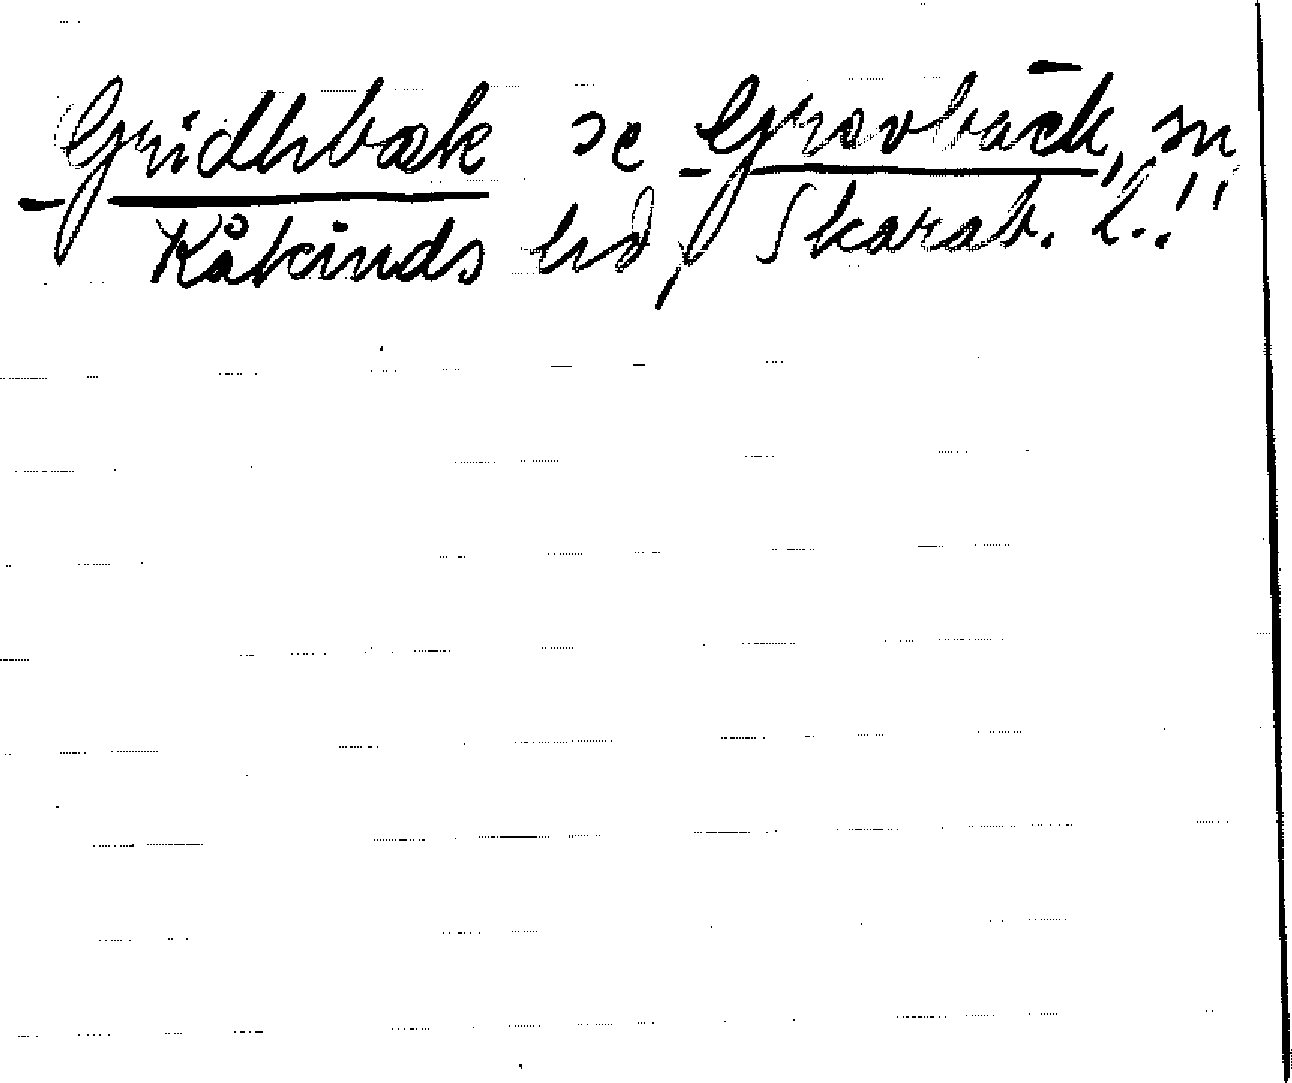 Gridhbæk se Grovbäck, sn
Kåkinds hd, Skarab. l.!!